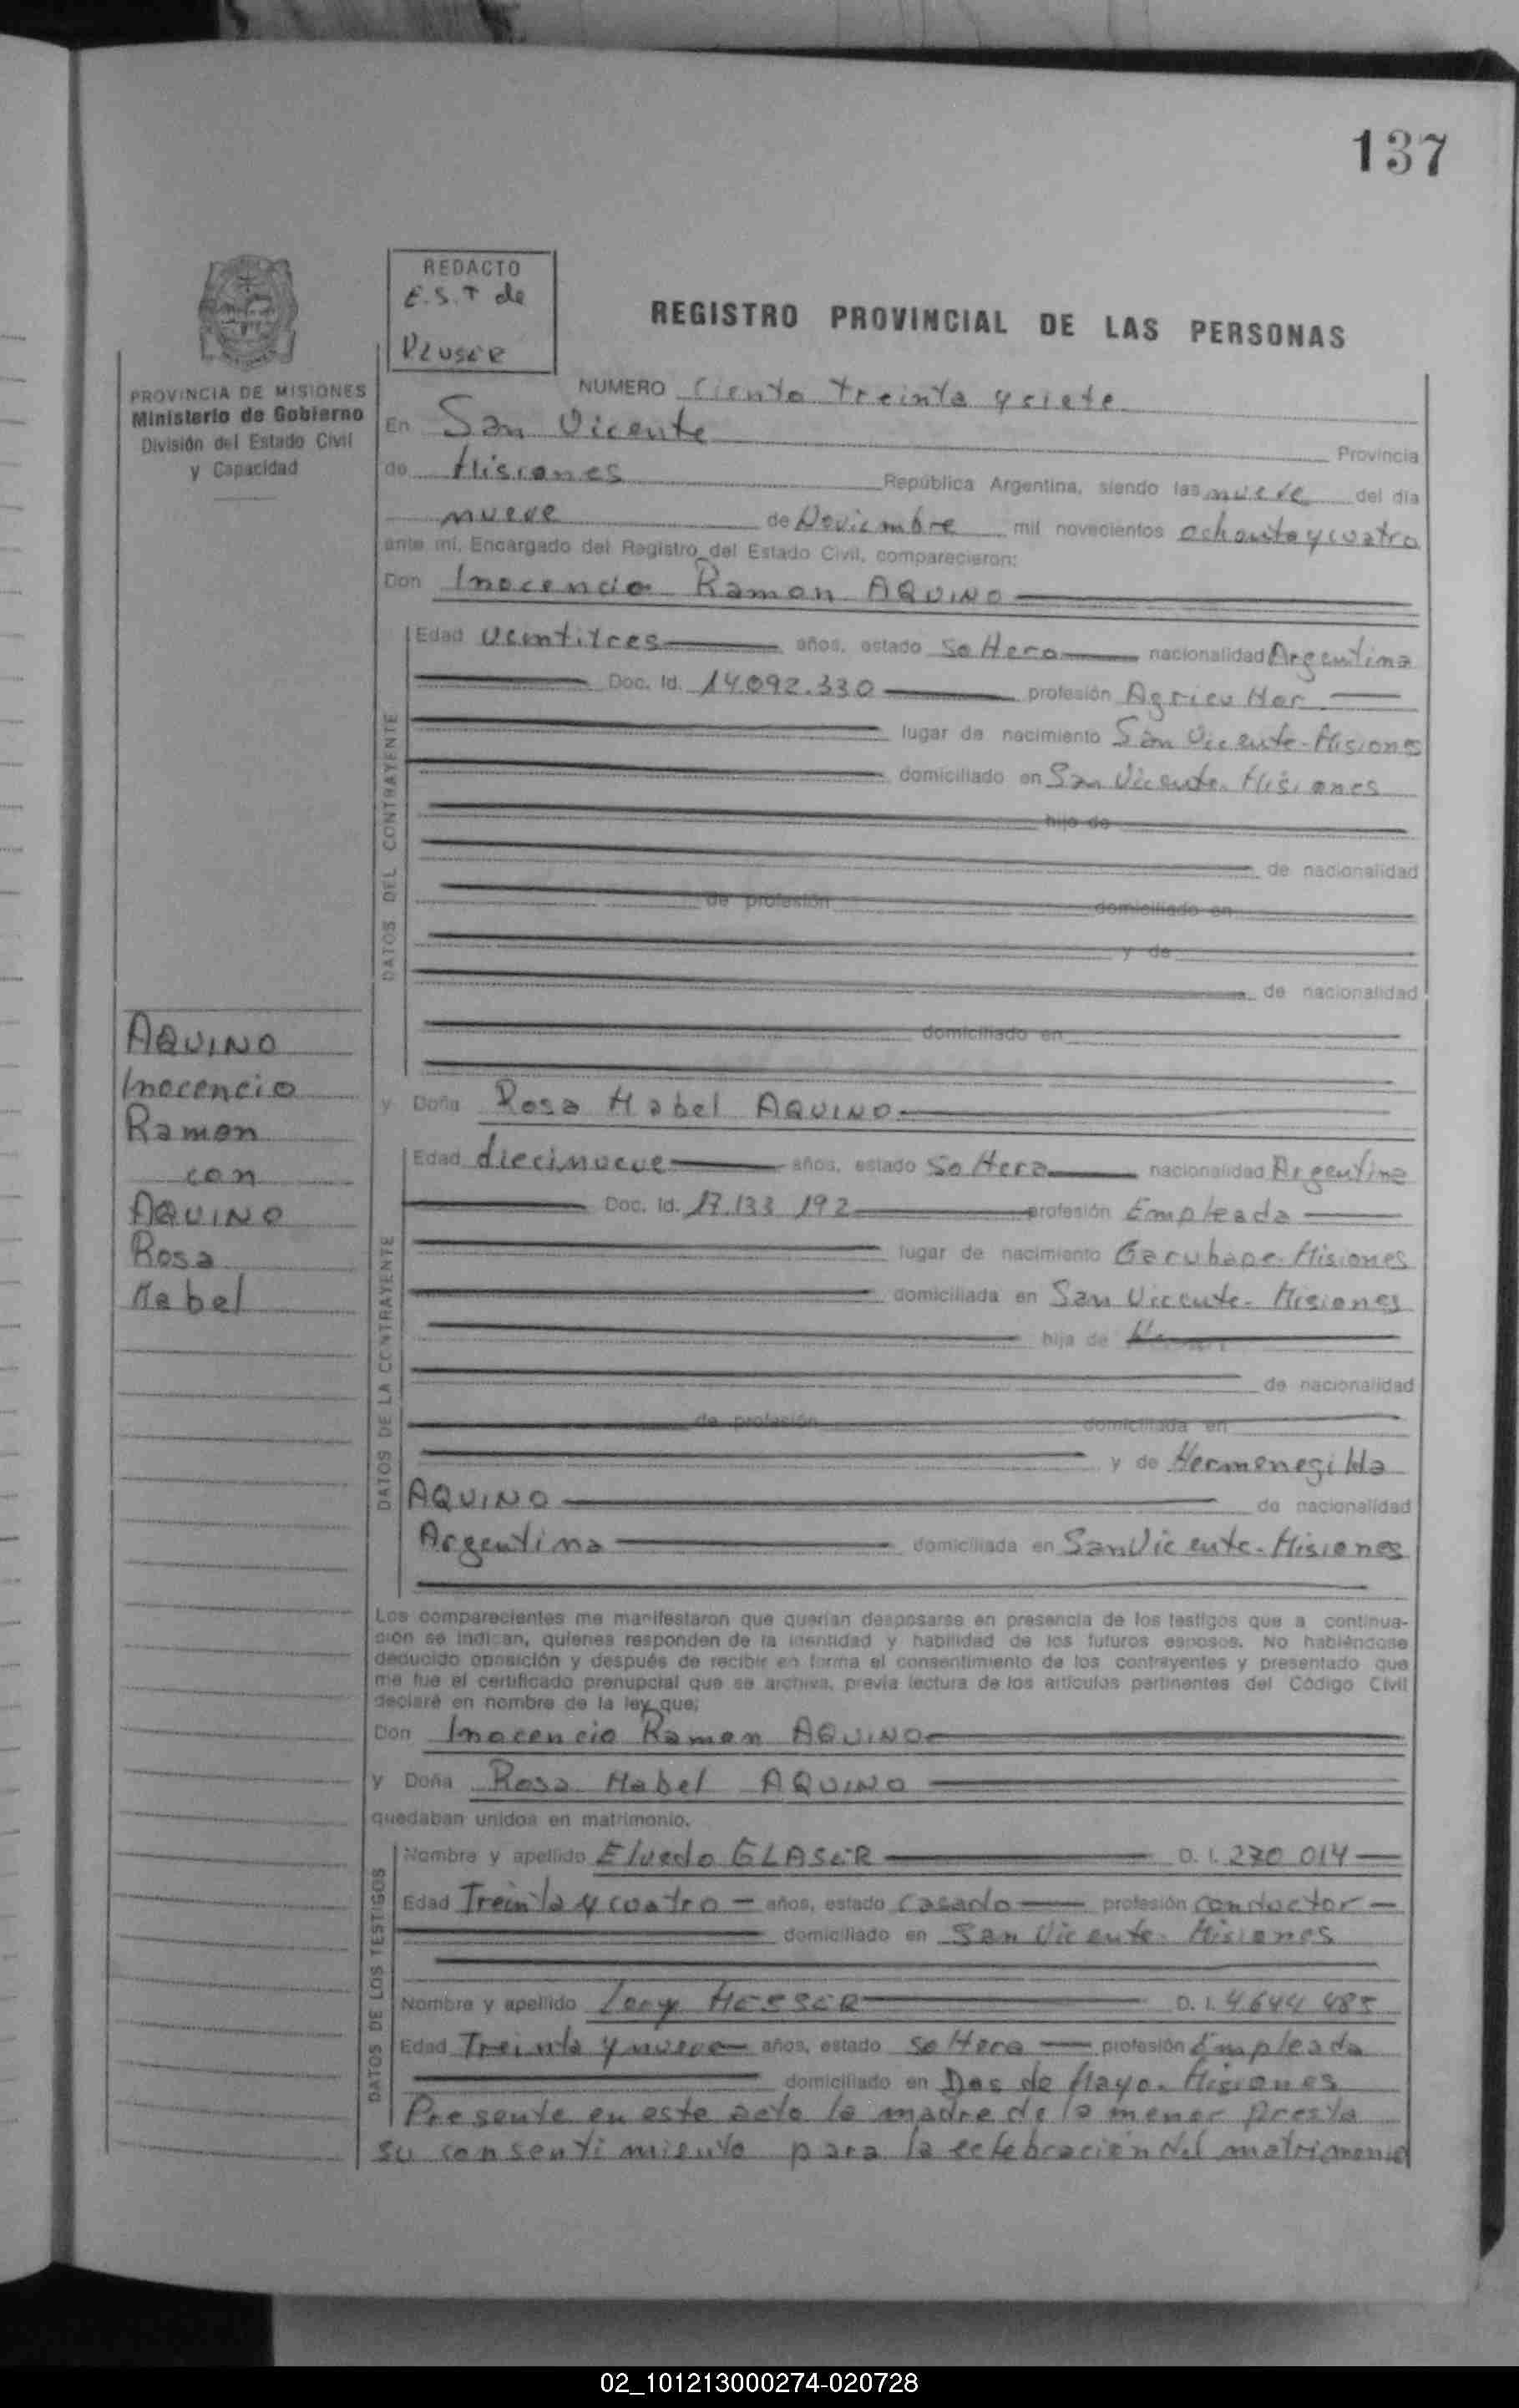 137
REDACTO
E.S.T de
REGISTRO PROVINCIAL DE LAS PERSONAS
PROVINCIA DE MISIONES
Ministerio de Gobierno
División del Estado Civil
y Capacidad
NUMERO Ciento treinta y siete
En San Vicente Provincia
de Misiones República Argentina, siendo las nueve del día
nueve de Noviembre mil novecientos ochenta y cuatro
ante mí, Encargado del Registro del Estado Civil, comparecieron:
Don Inocencio Ramon AQUINO
DATOS DEL CONTRAYENTE
Edad veintitres años, estado soltero nacionalidad Argentina
Doc. Id. 14.092.330 profesión Agricultor
lugar de nacimiento San Vicente - Misiones
domiciliado en San Vicente. Misiones
hijo de
de nacionalidad
de profesión domiciliado en
y de
de nacionalidad
domiciliado en
AQUINO
Inocencio
Ramon
con
AQUINO
Rosa
Mabel
y Doña Rosa Mabel AQUINO
DATOS DE LA CONTRAYENTE
Edad diecinueve años, estado Soltera nacionalidad Argentina
Doc. Id. 17.133 192 profesión Empleada
lugar de nacimiento Garuhape. Misiones
domiciliada en San Vicente - Misiones
hija de
de nacionalidad
de profesión domiciliada en
y de Hermenegilda
AQUINO de nacionalidad
Argentina domiciliada en San Vicente - Misiones
Los comparecientes me manifestaron que querían desposarse en presencia de los testigos que a continua-
ción se indican, quienes responden de la identidad y habilidad de los futuros esposos. No habiéndose
deducido oposición y después de recibir en forma el consentimiento de los contrayentes y presentado que
me fue el certificado prenupcial que se archiva, previa lectura de los artículos pertinentes del Código Civil
declaré en nombre de la ley que;
Don Inocencio Ramon AQUINO
y Doña Rosa Mabel AQUINO
quedaban unidos en matrimonio.
DATOS DE LOS TESTIGOS
Nombre y apellido Elvedo GLASER D. I. 270 014
Edad Treinta y cuatro años, estado casado profesión conductor
domiciliado en San Vicente. Misiones
Nombre y apellido Leny MESSER D. I. 4.644 485
Edad Treinta y nueve años, estado soltera profesión Empleada
domiciliado en Dos de Mayo. Misiones
Presente en este acto la madre de la menor presta
su consentimiento para la celebración del matrimonio
02_101213000274-020728